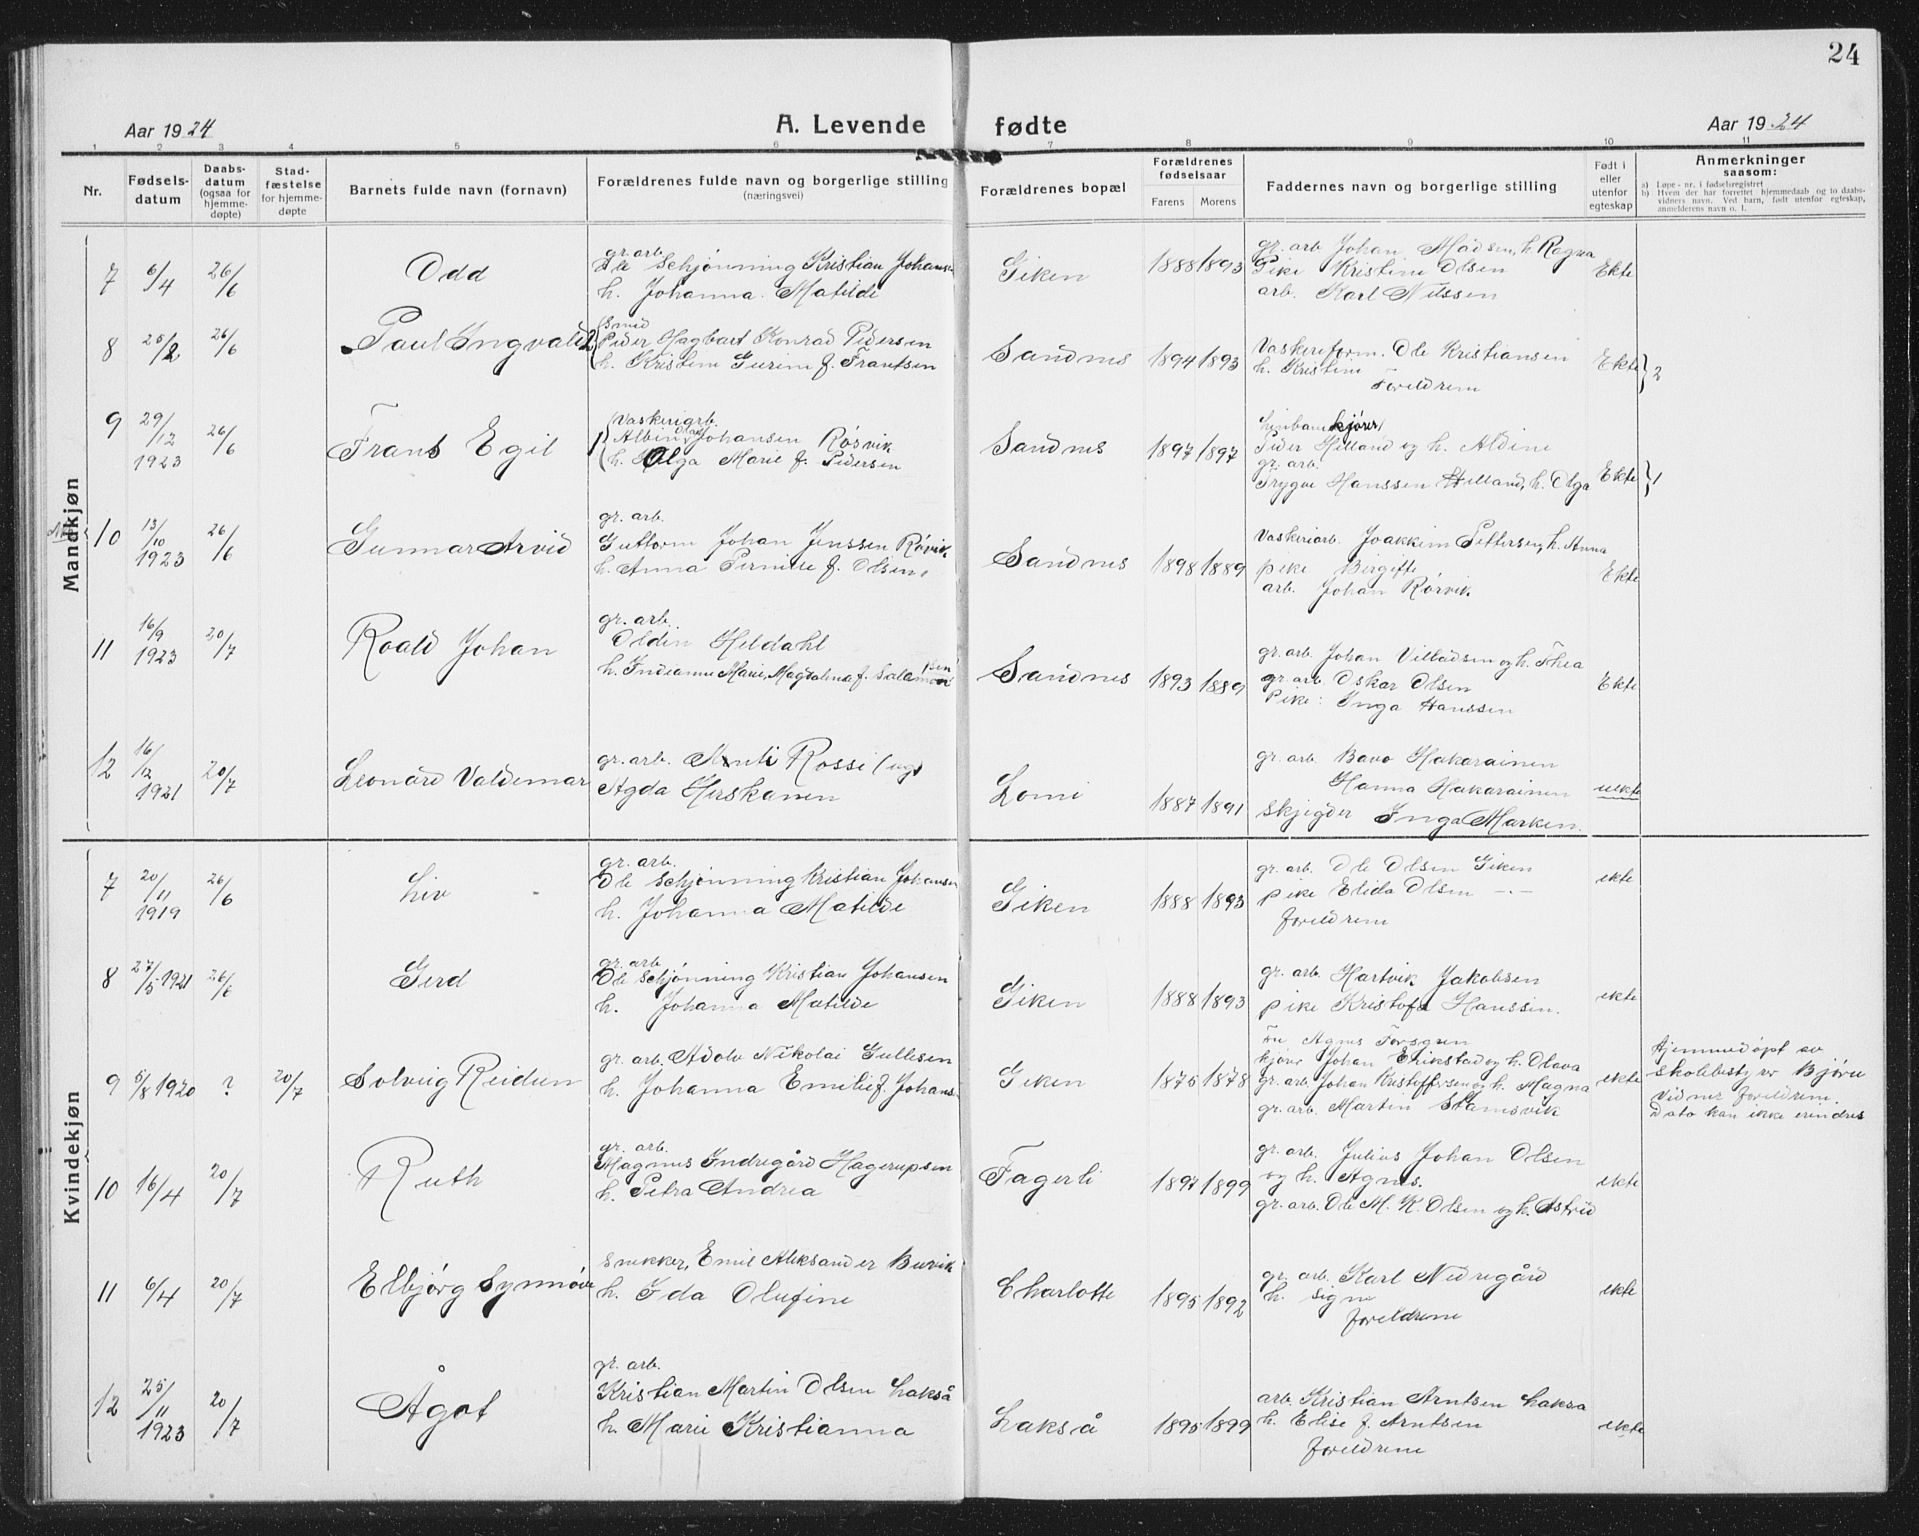 24
Aar 1924
A. Levende fødte
Aar 1924
1 2 3 4 5 6 7 8 9 10 11
Nr.
Fødsels-
datum
Daabs-
datum
(ogsaa for
hjemme-
døpte)
Stad-
fæstelse
for hjemme-
døpte
Barnets fulde navn (fornavn)
Forældrenes fulde navn og borgerlige stilling
(næringsvei)
Forældrenes bopæl
Forældrenes
fødselsaar
Farens Morens
Faddernes navn og borgerlige stilling
Født i
eller
utenfor
egteskap
Anmerkninger
saasom:
a) Løpe-nr. i fødselsregistret
b) Hvem der har forrettet hjemmedaab og to daabs-
vidners navn. Ved barn, født utenfor egteskap,
anmelderens navn o. l.
Mandkjøn
7 6/4 26/6 Odd
gr. arb.
Ole Schjønning Kristian Johansen
h. Johanna Matilde
Giken 1888 1893
gr. arb. Johan Madsen, h. Ragna
Pike Kristine Olsen
arb. Karl Nilssen
Ekte
8 25/2 26/6 Paul Ingvald
Smed
Peder Hagbart Konrad Pedersen
h. Kristine Gurine f. Frantsen
Sandnes 1894 1893
Vaskereform. Ole Kristiansen
h. Kristine
Foreldrene
Ekte } 2
9 29/12 1923 26/6 Frans Egil
Vaskeriarb.
Albin Olaf Johansen Rørvik
h. Olga Marie f. Pedersen
Sandnes 1897 1897
Linbanekjører
Peder Hilland og h. Aldine
gr. arb.
Trygve Hanssen Hilland, h. Olga
Ekte } 1
10 13/10 1923 26/6 Gunnar Arvid
gr. arb.
Guttorm Johan Jenssen Rørvik
h. Anna Pernille f. Olsen
Sandnes 1898 1889
Vaskeriarb. Joakkim Pettersen, h. Anna
pike Birgitte
arb. Johan Rørvik
Ekte
11 16/9 1923 20/7 Roald Johan
gr. arb.
Oldin Heldahl
h. Indianne Marie, Magdalena f. Salamonsen
Sandnes 1893 1889
gr. arb. Johan Villadsen og h. Thea
gr. arb Oskar Olsen
Pike: Inga Hanssen
Ekte
12 16/12 1921 20/7 Leonard Valdemar
gr. arb. Anti Rossi (ug)
Agda Herskanen
Lomi 1887 1891
gr. arb. Bavo Hakarainen
Hanna Hakarainen
Skjegder Inga Marken.
uekte
Kvindekjøn
7 20/11 1919 26/6 Liv
gr. arb.
Ole Schjønning Kristian Johansen
h. Johanna Matilde
Giken 1888 1893
gr. arb. Ole Olsen Giken
pike Elida Olsen -"-
foreldrene
ekte
8 27/5 1921 26/6 Gerd
gr. arb
Ole Schjønning Kristian Johansen
h. Johanna Matilde
Giken 1888 1893
gr. arb. Hartvik Jakobsen
pike Kristofa Hanssen.
ekte
9 5/8 1920 ? 20/7 Solveig Reidun
gr. arb. Adolv Nikolai Gullesen
h. Johanna Emilie f. Johans.
Giken 1875 1878
Fru Agnes Forsgren
kjører Johan Erikstad og h. Olava
gr. arb Johan Kristoffersen og h. Magna
gr. arb. Martin Stamsvik
ekte
Hjemmedøpt av
skolebestyrer Bjørn
Vidner foreldrene.
Dato kan ikke erindres
10 16/4 20/7 Ruth
gr. arb.
Magnus Indregård Hagerupsen
h. Petra Andrea
Fagerli 1897 1899
gr. arb. Julius Johan Olsen
og h. Agnes.
gr. arb. Ole M. K. Olsen og h. Astrid
ekte
11 6/4 20/7 Elbjørg Synnøve
Snekker, Emil Aleksander Burvik
h. Ida Olufine
Charlotte 1895 1892
gr. arb. Karl Nedregård
h. Signe
foreldrene
ekte
12 25/11 1923 20/7 Ågot
gr. arb.
Kristian Martin Olsen Lakså
h. Marie Kristianna
Lakså 1895 1899
arb. Kristian Arntsen Lakså
h. Elise f. Arntsen
foreldrene
ekte